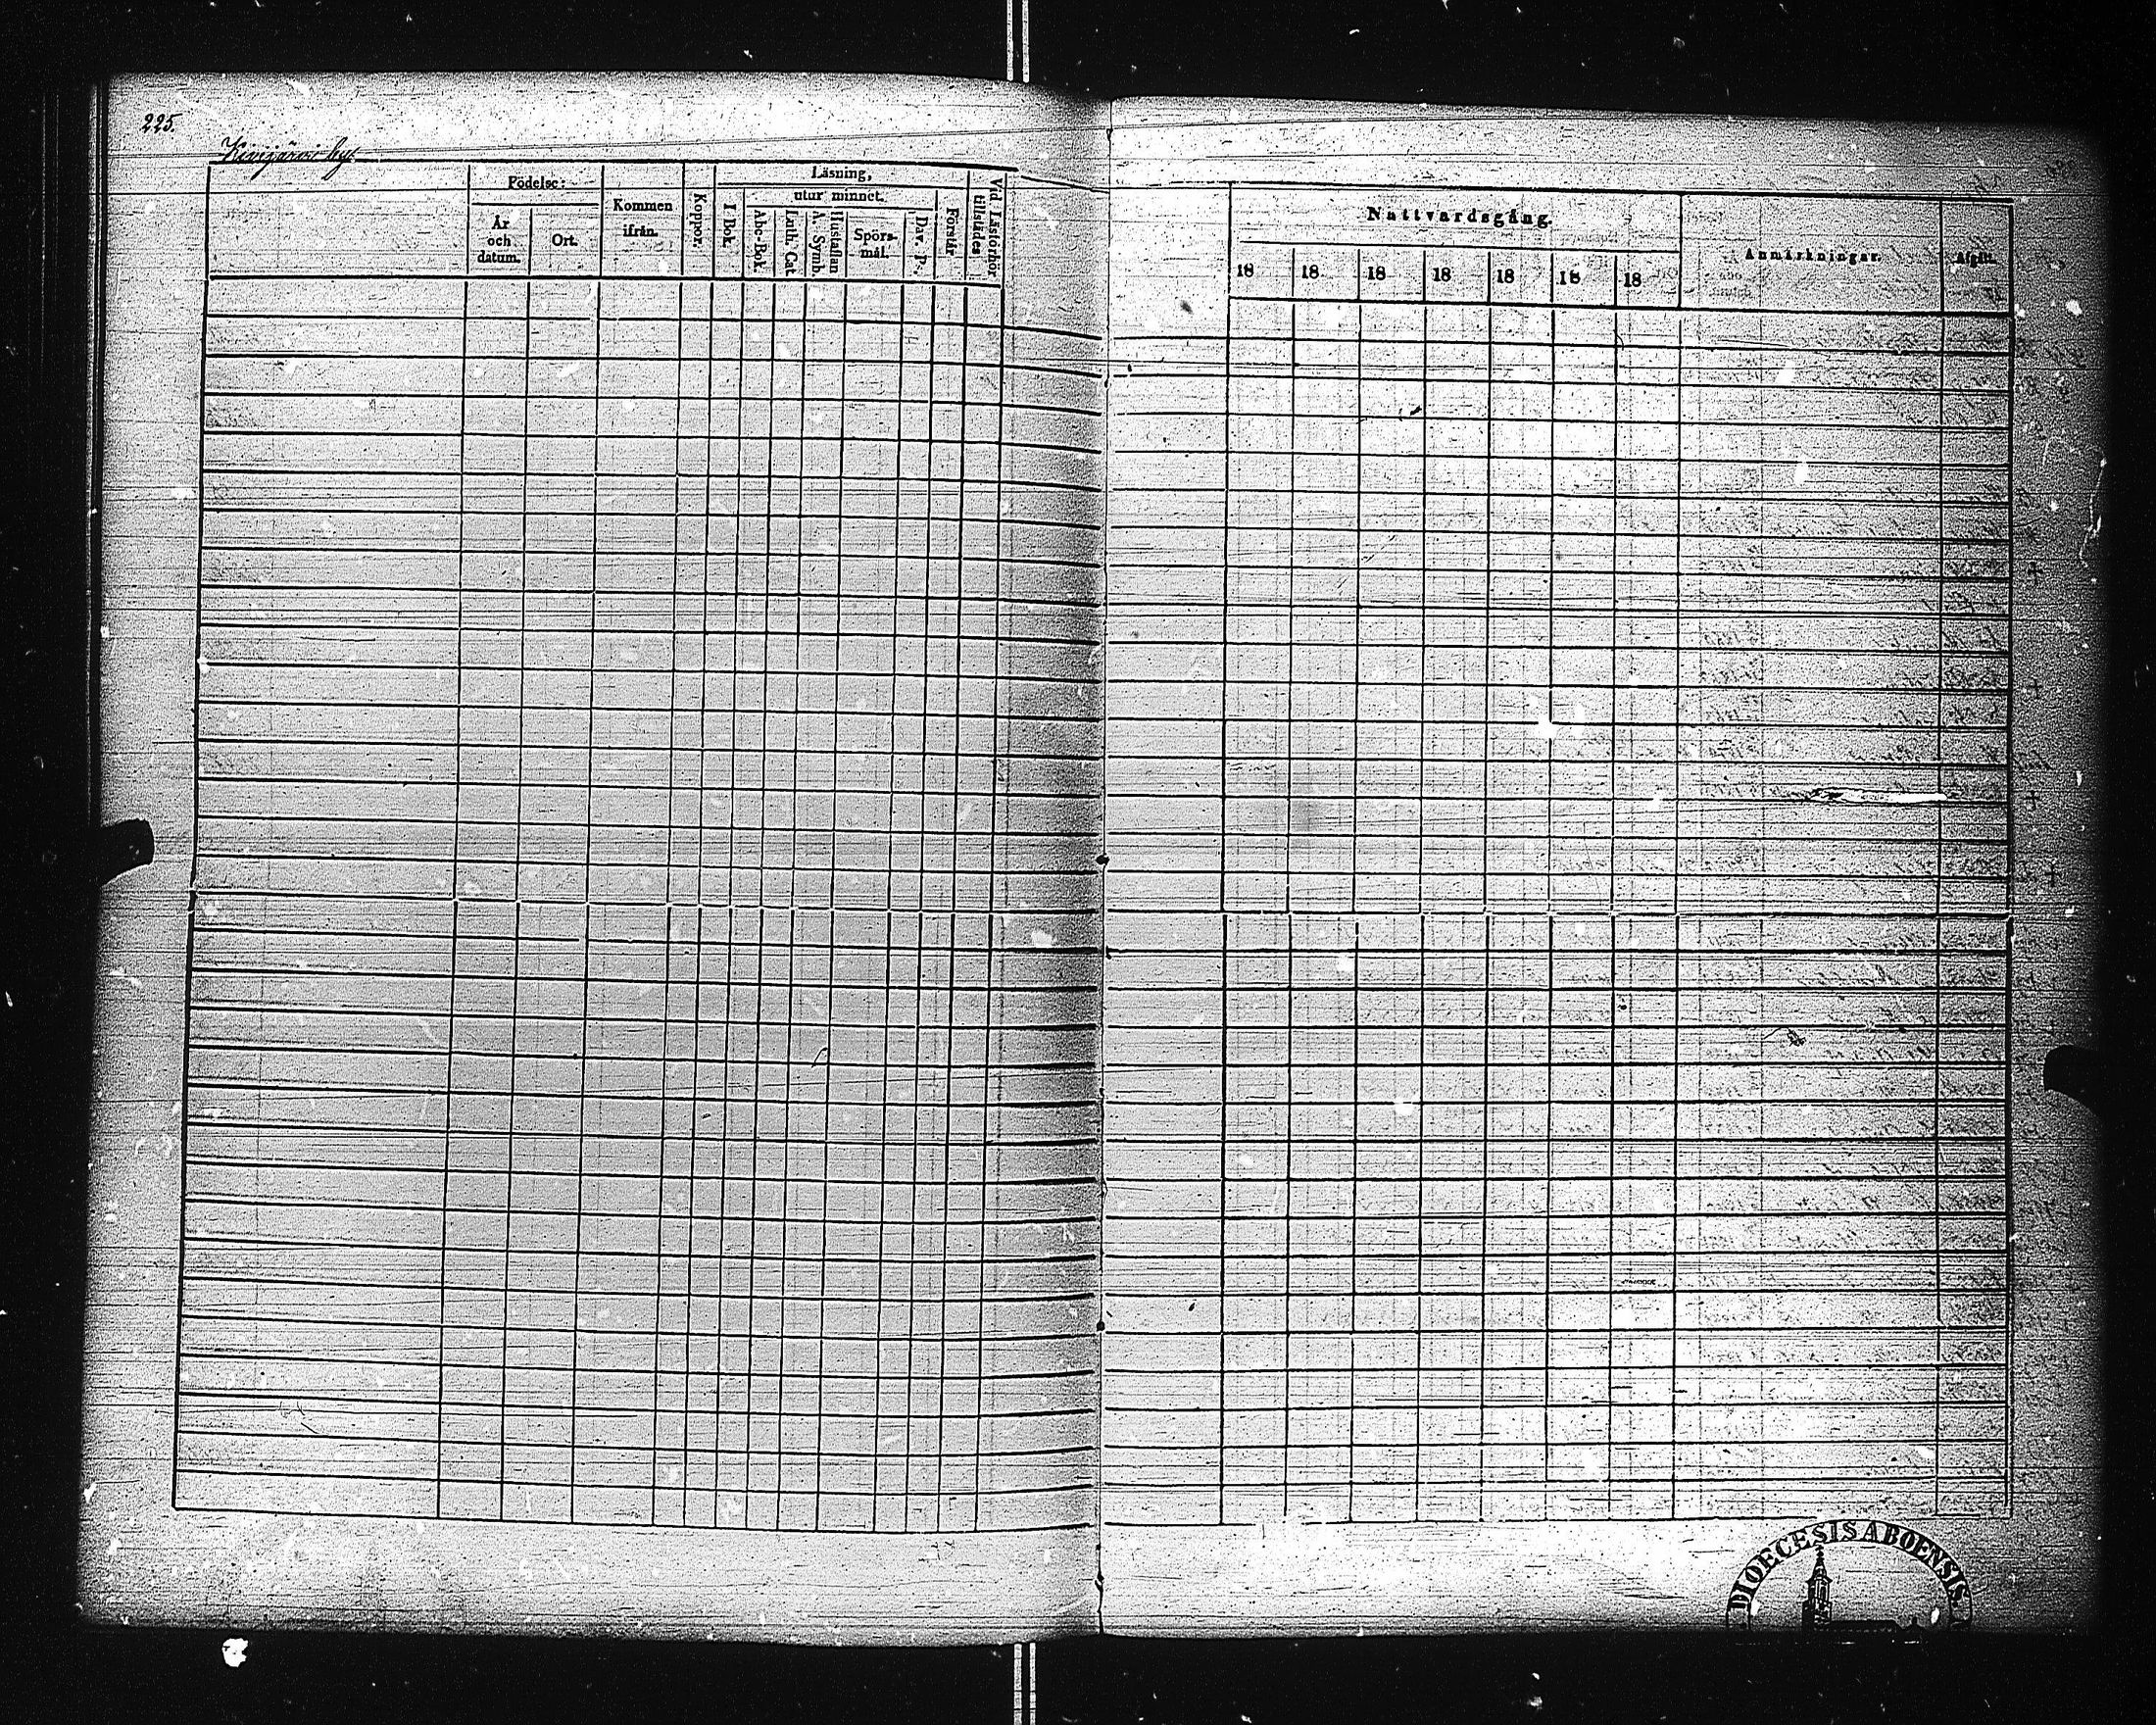 225.
Kivijärvi by
Födelse:
År och datum.
Ort.
Kommen ifrån.
Koppor.
Läsning,
I Bok.
utur minnet.
Abc-Bok.
Luth. Cat.
Hustaflan A. Symb.
Spörs-mål.
Dav. Ps.
Förstår
Vid Läsförhör tillstädes
Nattvardsgång.
18 18 18 18 18 18 18
Anmärkningar.
Afgift.
DIOECESIS ABOENSIS